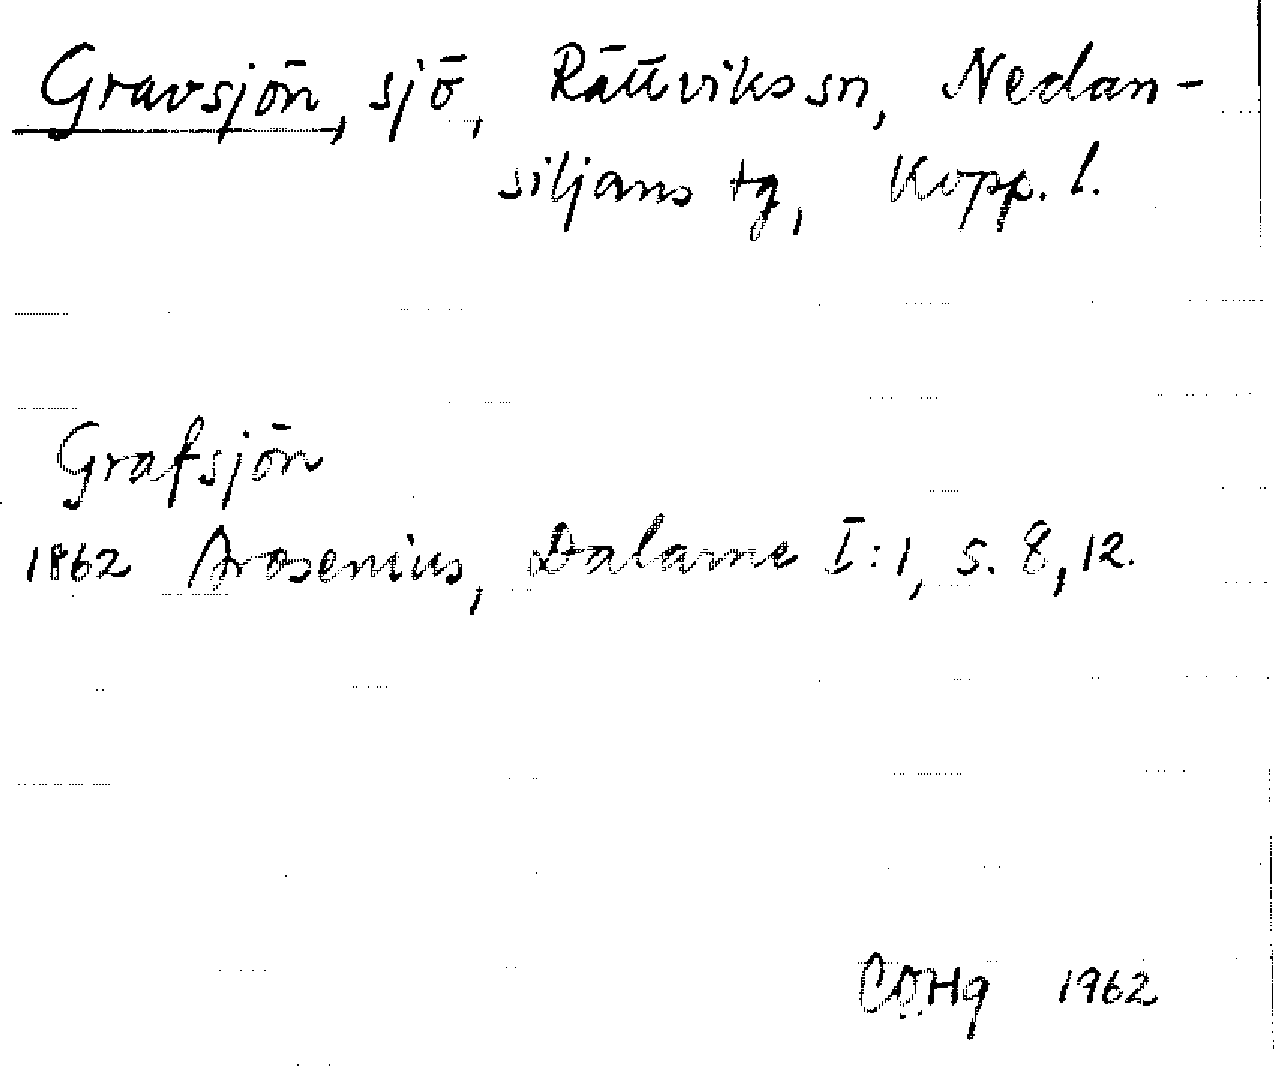 Gravsjön, sjö, Rättviks sn, Nedan-
siljans tg, Kopp. l.
Grafsjön
1862 Arosenius, Dalarne I:1, s. 8, 12.
COHg 1962